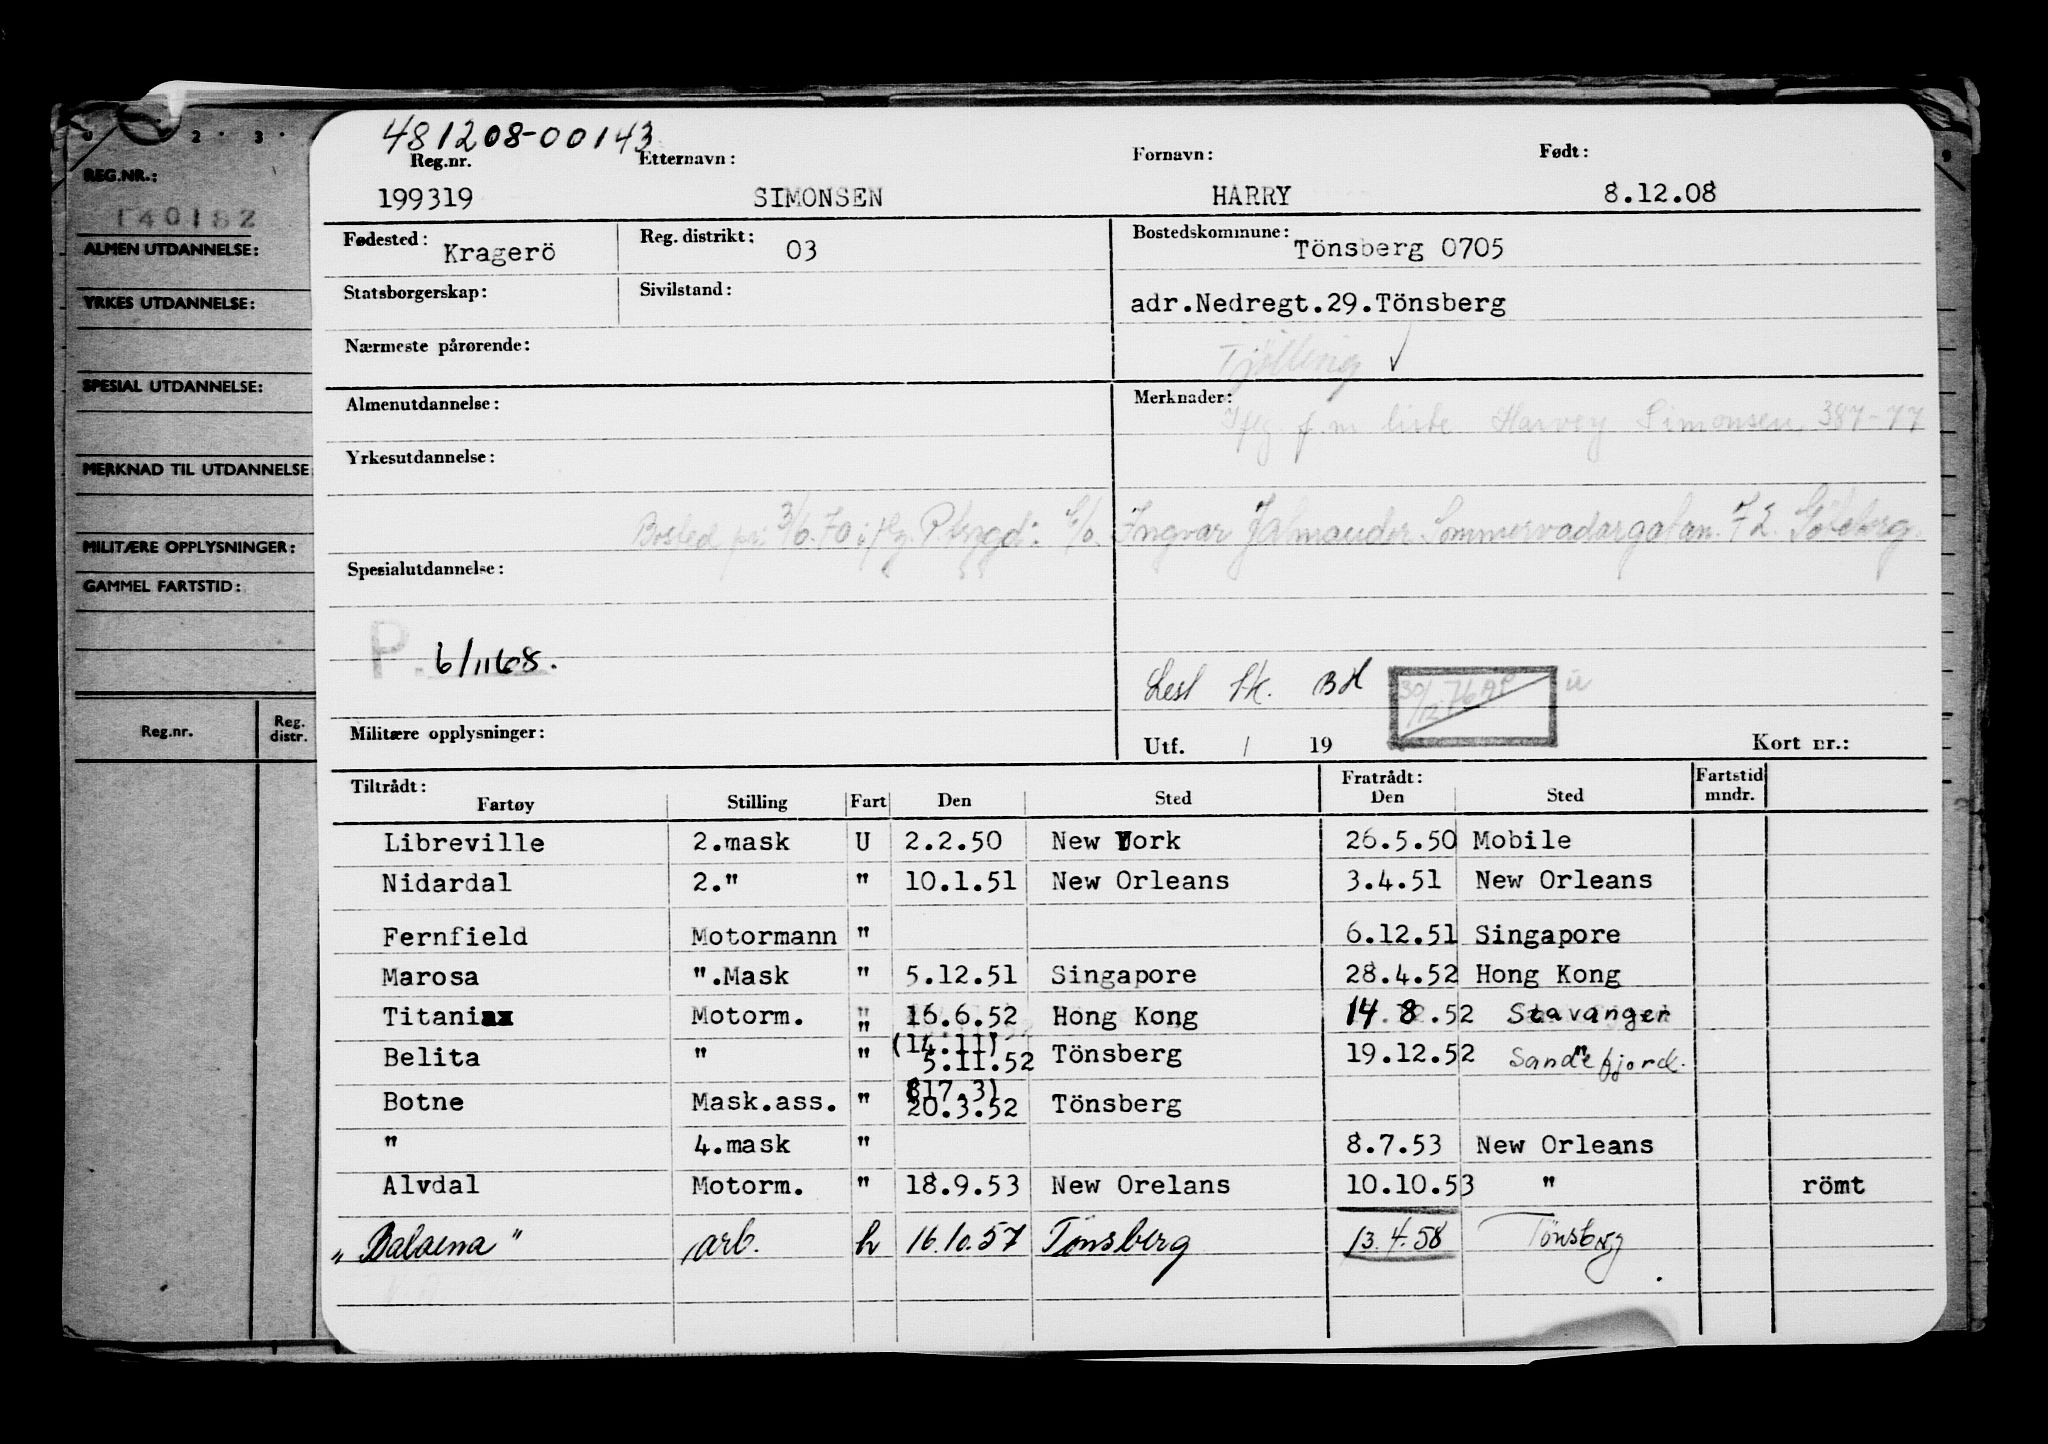 481208-00143
Reg.nr. Etternavn: Fornavn: Født:
199319 SIMONSEN HARRY 8.12.08
Fødested: Kragerö Reg. distrikt: 03 Bostedskommune: Tönsberg 0705
Statsborgerskap: Sivilstand: adr.Nedregt.29.Tönsberg
Nærmeste pårørende: Tjölling
Almenutdannelse: Merknader: Iflg. f.m liste Harvey Simonsen 387-77
Yrkesutdannelse:
Bosted pr. 3/6.70 iflg. P. c/o. Ingvar 72. Göteborg.
Spesialutdannelse:
P. 6/11 68.
Lest Sk. BH 30/12 76
Militære opplysninger: Utf. / 19 Kort nr.:
Tiltrådt: Fratrådt: Fartstid
Fartøy Stilling Fart Den Sted Den Sted mndr.
Libreville 2.mask U 2.2.50 New York 26.5.50 Mobile
Nidardal 2." " 10.1.51 New Orleans 3.4.51 New Orleans
Fernfield Motormann " 6.12.51 Singapore
Marosa ".Mask " 5.12.51 Singapore 28.4.52 Hong Kong
Titania Motorm. " 16.6.52 Hong Kong 14.8.52 Stavanger
(14.11)
Belita " " 5.11.52 Tönsberg 19.12.52 Sandefjord.
(17.3)
Botne Mask.ass. " 20.3.52 Tönsberg
" 4.mask " 8.7.53 New Orleans
Alvdal Motorm. " 18.9.53 New Orelans 10.10.53 " römt
"Balaena" arb. h 16.10.57 Tønsberg 13.4.58 Tönsberg
REG.NR.:
140182
ALMEN UTDANNELSE:
YRKES UTDANNELSE:
SPESIAL UTDANNELSE:
MERKNAD TIL UTDANNELSE
MILITÆRE OPPLYSNINGER:
GAMMEL FARTSTID:
Reg.nr. Reg. distr.